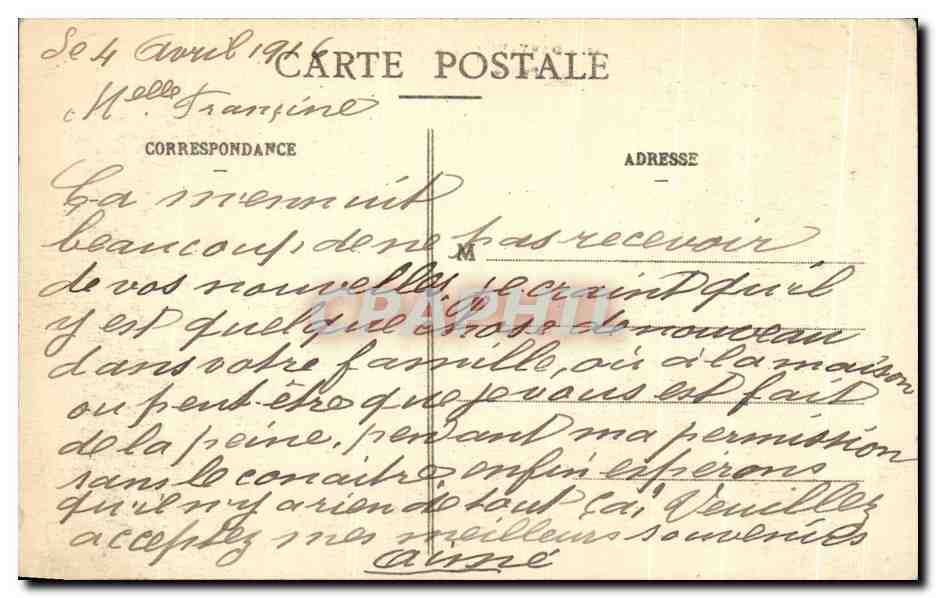 Le 4 Avril 1916
CARTE POSTALE
Melle. Françine
CORRESPONDANCE
ADRESSE
Ça m'ennuit
beaucoup, de ne pas recevoir
M
de vos nouvelles je craint qu'il
y est quelque chose de nouveau
dans votre famille, où à la maison
ou peut-être que je vous est fait
de la peine, pendant ma permission
sans le conaitre, enfin espérons
qu'il n'y a rien de tout ça, Veuillez
acceptez mes meilleurs souvenirs
aimé
CPAPHIL